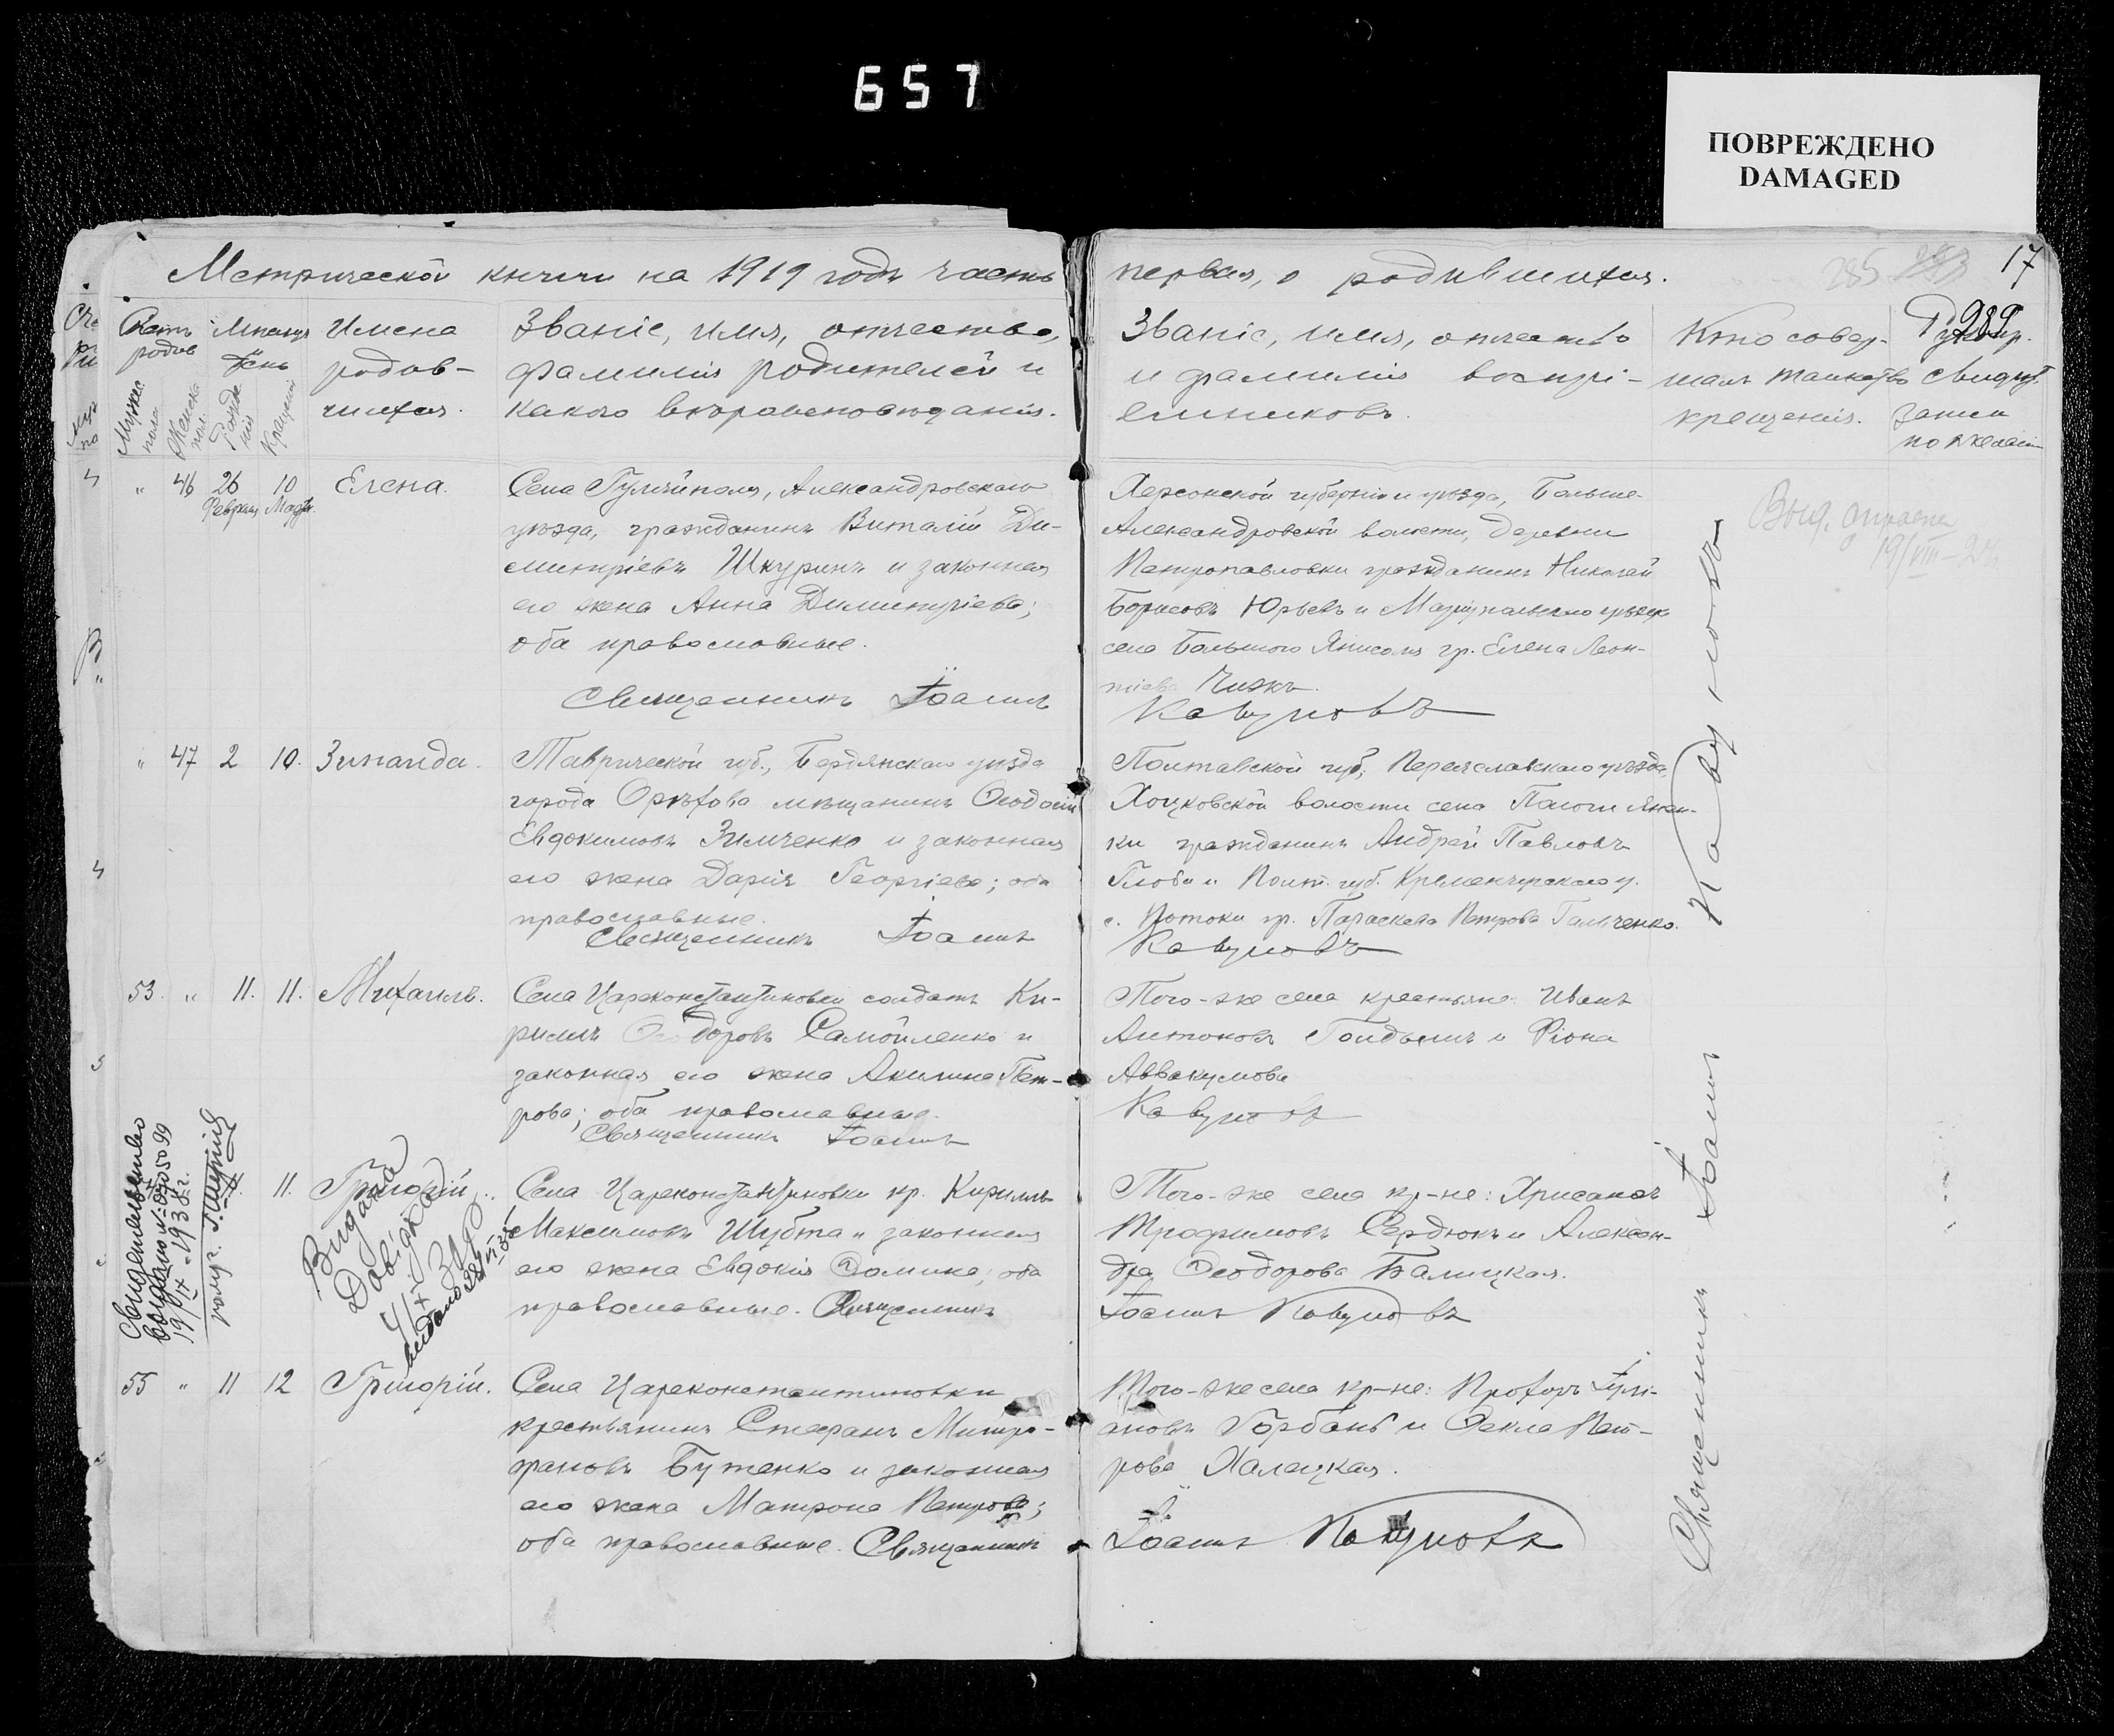 657
ПОВРЕЖДЕНО
DAMAGED
Метрической книги на 1919 годъ часть
первая, о родившихся.
285
17
289
Счетъ родив
Мужска пола
Женска пол.
Мѣсяцъ День
Рожденія
Крещенія
Имена
родив-
шихся.
Званіе, имя, отчество,
фамилія родителей и
какого вѣроисповѣданія.
Званіе, имя, отчество
и фамилія воспрі-
емниковъ.
Кто совер-
шалъ таинство
крещенія.
Рукопр.
свидѣт.
записи
по желан
" 46 26 10 Елена.
Февраля Марта.
Села Гуляйполя, Александровскаго
уѣзда, гражданинъ Виталій Ди-
митріевъ Шкуринъ и законная
его жена Анна Димитріева;
оба православные.
Священникъ Іоаннъ
Херсонской губерніи и уѣзда, Больше-
Александровской волости, деревни
Петропавловки гражданинъ Николай
Борисовъ Юрьевъ и Маріупольскаго уѣзда
села Большого Янисоля гр. Елена Леон-
тіева Чижъ.
Кавуновъ
Выд.
19/VIII-24
" 47 2 10. Зинаида.
Таврической губ., Бердянскаго уѣзда
города Орѣхова мѣщанинъ Ѳеодосій
Евдокимовъ Зимченко и законная
его жена Дарія Георгіева; оба
православные.
Священникъ Іоаннъ
Полтавской губ., Переяславскаго уѣзда,
Хоцковской волости села Пологи Янен-
ки гражданинъ Андрей Павловъ
Глоба и Полт. губ. Кременчугскаго у.
с. Потоки гр. Параскева Петрова Галиченко.
Кавуновъ
53. " 11. 11. Михаилъ.
Села Цареконстантиновки солдатъ Ки-
риллъ Ѳеодоровъ Самойленко и
законная его жена Акилина Пет-
рова; оба православные.
Священникъ Іоаннъ
Того-же села крестьяне: Иванъ
Антоновъ Гондылъ и Ріона
Аввакумова
Кавуновъ
11. Григорій.
Свидетельство
выдано
19/IX-1938 г.
Видана
Довідка
Села Цареконстантиновки кр. Кириллъ
Максимовъ Шубта и законная
его жена Евдокія Ѳомина; оба
православные. Священникъ
Того-же села кр-не: Хрисанѳъ
Трофимовъ Сердюкъ и Алексан-
дра Ѳеодорова Балицкая.
Іоаннъ Кавуновъ
55 " 11 12 Григорій.
Села Цареконстантиновки
крестьянинъ Стефанъ Митро-
фановъ Бутенко и законная
его жена Матрона Петрова;
оба православные. Священникъ
Того-же села кр-не: Прохоръ
ановъ Горбань и Ѳекла Пет-
рова Халецкая.
Іоаннъ Кавуновъ
Священникъ Іоаннъ Кавуновъ